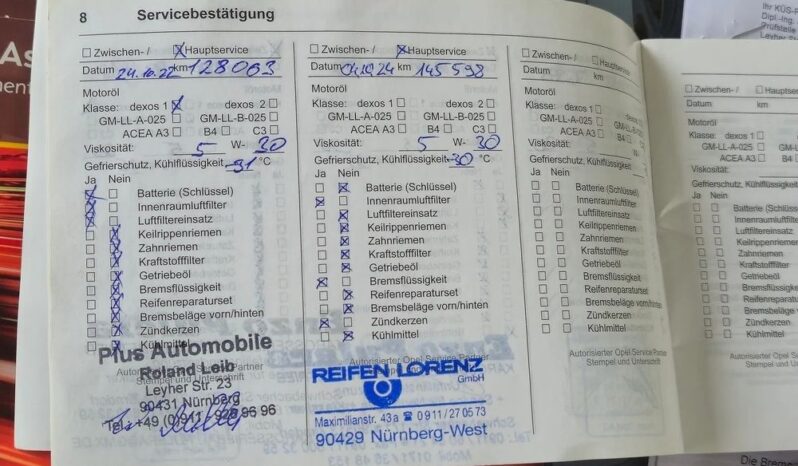 8 Servicebestätigung
Zwischen- / Hauptservice
Datum 24.10.22 km 128063
Motoröl
Klasse: dexos 1 dexos 2
GM-LL-A-025 GM-LL-B-025
ACEA A3 B4 C3
Viskosität: 5 W- 30
Gefrierschutz, Kühlflüssigkeit -31 °C
Ja Nein
Batterie (Schlüssel)
Innenraumluftfilter
Luftfiltereinsatz
Keilrippenriemen
Zahnriemen
Kraftstofffilter
Getriebeöl
Bremsflüssigkeit
Reifenreparaturset
Bremsbeläge vorn/hinten
Zündkerzen
Kühlmittel
Plus Automobile
Roland Leib
Leyher Str. 23
90431 Nürnberg
Stempel und Unterschrift
Zwischen- / Hauptservice
Datum 04.10.24 km 145598
Motoröl
Klasse: dexos 1 dexos 2
GM-LL-A-025 GM-LL-B-025
ACEA A3 B4 C3
Viskosität: 5 W- 30
Gefrierschutz, Kühlflüssigkeit -30 °C
Ja Nein
Batterie (Schlüssel)
Innenraumluftfilter
Luftfiltereinsatz
Keilrippenriemen
Zahnriemen
Kraftstofffilter
Getriebeöl
Bremsflüssigkeit
Reifenreparaturset
Bremsbeläge vorn/hinten
Zündkerzen
Kühlmittel
Autorisierter Opel Service Partner
REIFEN LORENZ
GmbH
Maximilianstr. 43a ☎ 09 11 / 27 05 73
90429 Nürnberg-West
Zwischen- / Hauptservice
Datum km
Motoröl
Klasse: dexos 1 dexos 2
GM-LL-A-025 GM-LL-B-025
ACEA A3 B4 C3
Viskosität: W-
Gefrierschutz, Kühlflüssigkeit °C
Ja Nein
Batterie (Schlüssel)
Innenraumluftfilter
Luftfiltereinsatz
Keilrippenriemen
Zahnriemen
Kraftstofffilter
Getriebeöl
Bremsflüssigkeit
Reifenreparaturset
Bremsbeläge vorn/hinten
Zündkerzen
Kühlmittel
Autorisierter Opel Service Partner
Stempel und Unterschrift
Zwischen- /
Datum km
Motoröl
Klasse: dexos 1
GM-LL-A-025
ACEA A3 B4
Viskosität:
Gefrierschutz, Kühlflüssigkeit
Ja Nein
Batterie (Schlüssel)
Innenraumluftfilter
Luftfiltereinsatz
Keilrippenriemen
Zahnriemen
Kraftstofffilter
Getriebeöl
Bremsflüssigkeit
Reifenreparaturset
Bremsbeläge vorn/hinten
Zündkerzen
Kühlmittel
Autorisierter Opel Service
Stempel und